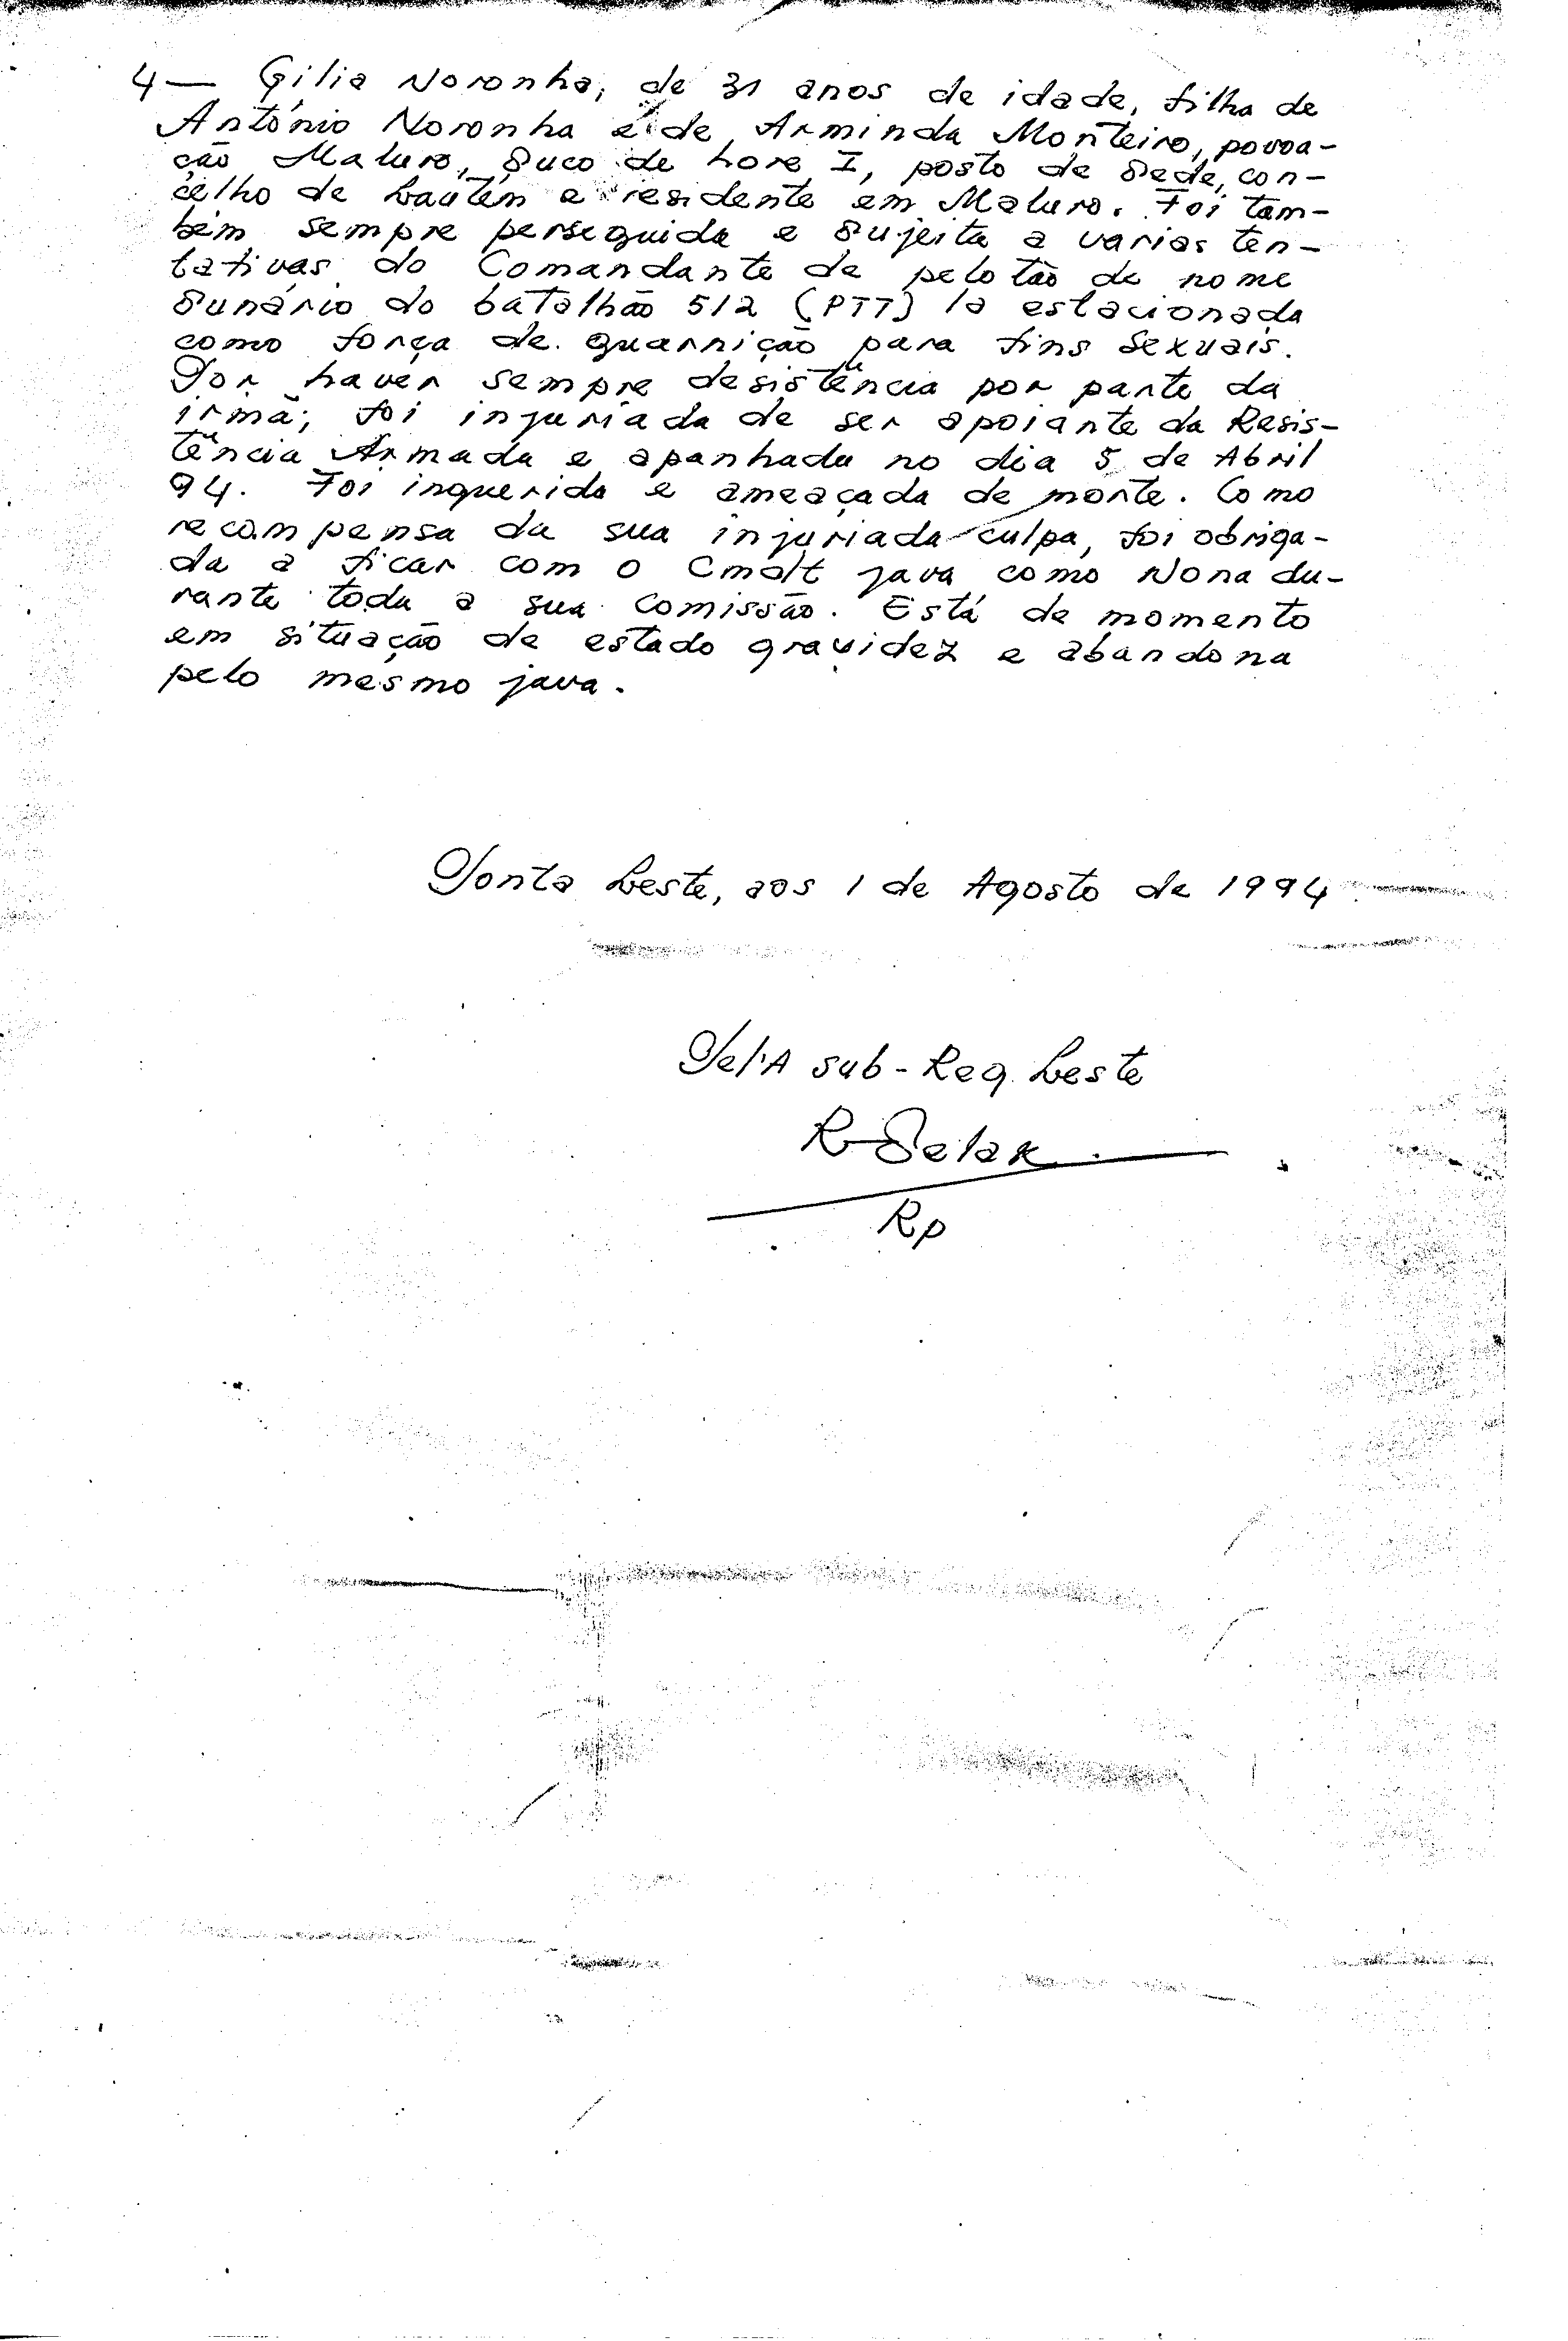 4 — Gilia Noronha, de 31 anos de idade, filha de
António Noronha e de Arminda Monteiro, povoa-
ção Maluro, Suco de Lore I, posto de Sede, con-
celho de Lautém e residente em Maluro. Foi tam-
bém sempre perseguida e sujeita a varias ten-
tativas do Comandante de pelotão de nome
Sunário do batalhão 512 (PTT) la estacionada
como força de guarnição para fins sexuais.
Por haver sempre desistência por parte da
irmã; foi injuriada de ser apoiante da Resis-
tência Armada e apanhada no dia 5 de Abril
94. Foi inquerida e ameaçada de morte. Como
recompensa da sua injuriada culpa, foi obriga-
da a ficar com o Cmdt java como Nona du-
rante toda a sua comissão. Está de momento
em situação de estado gravidez e abandona
pelo mesmo java.
Ponta Leste, aos 1 de Agosto de 1994
Pel'A sub-Reg. Leste
R. Selak
Rp